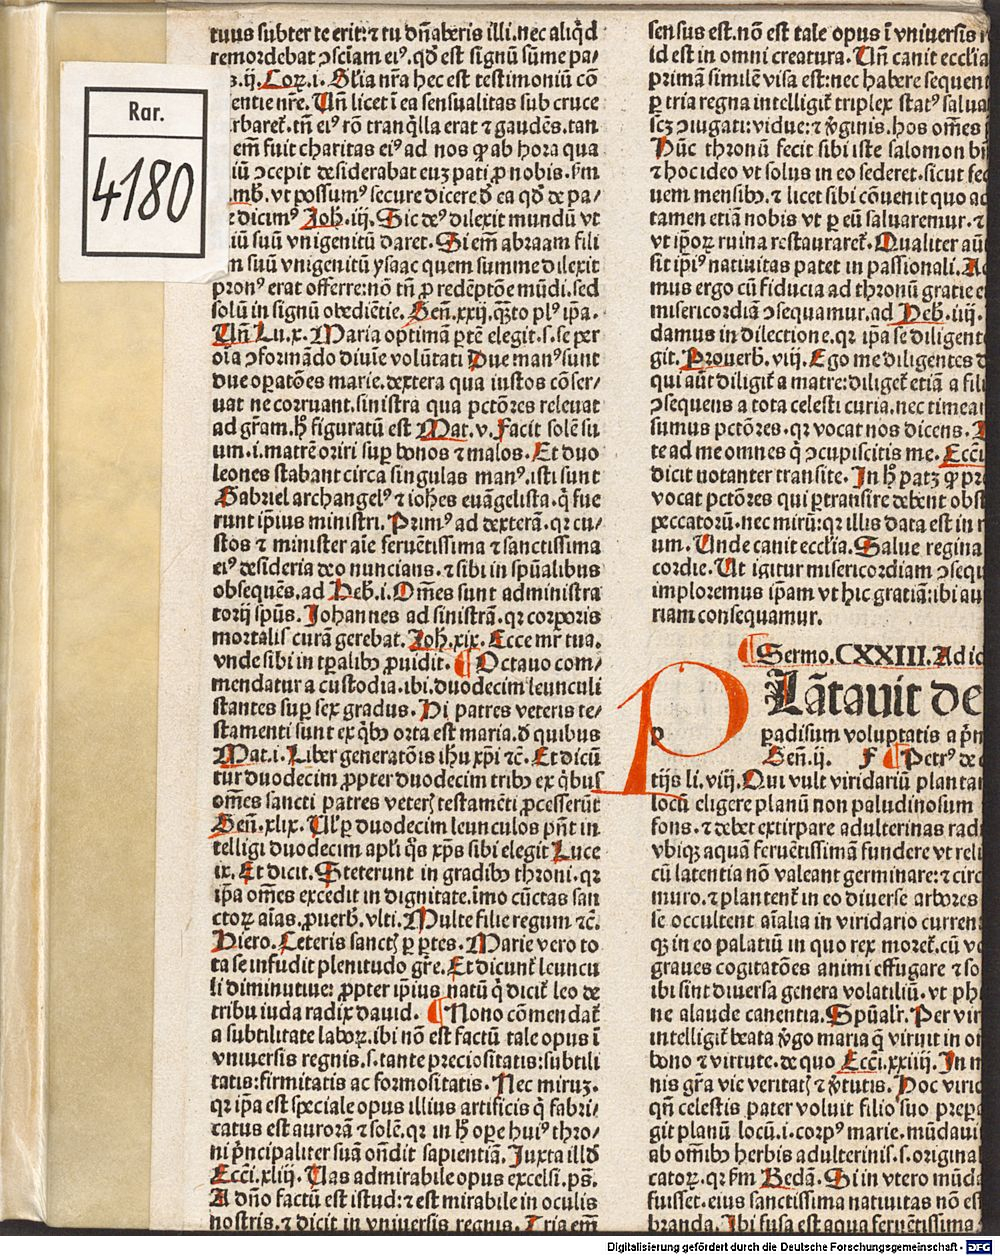 Rar.
4180
tuus subter te erit: ⁊ tu dñaberis illi. nec aliq̃d
remordebat ↄsciam eiꝰ. qd̃ est signũ sũme pa-
s. ij. Coꝝ. i. Glia nr̃a hec est testimoniũ cõ
entie nr̃e. Uñ licet ĩ ea sensualitas sub cruce
rbaret̃. tñ eiꝰ rõ tranq̃lla erat ⁊ gaudẽs. tan
em̃ fuit charitas eiꝰ ad nos ꝙ ab hora qua
iũ ↄcepit desiderabat euꝫ pati ꝓ nobis. ẜm
mb̃. vt possumꝰ secure dicere đ ea qd̃ de pa/
e dicimꝰ Joh̃. iij. Sic deꝰ dilexit mundũ vt
iũ suũ vnigenitũ daret. Si em̃ abraam fili
m suũ vnigenitũ ysaac quem summe dilexit
pronꝰ erat offerre: nõ tñ ꝓ redẽptõe mũdi. sed
solũ in signũ obediẽtie. Gen̄. xxij. q̃ꝫto plꝰ ipa.
Uñ Lu. x. Maria optimã ꝑtẽ elegit. s. se per
oĩa ↄformãdo diuĩe volũtati Due manꝰ sunt
due oꝑatões marie. dextera qua iustos cõser/
uat ne corruant. sinistra qua pctõres releuat
ad gr̃am. h̃ figuratũ est Mat. v. Facit solẽ su
um. i. matrẽ oriri suꝑ bonos ⁊ malos. Et duo
leones stabant circa singulas manꝰ. isti sunt
Gabriel archangelꝰ ⁊ ioh̃es euãgelista. q̃ fue
runt ip̃ius ministri. Primꝰ ad dexterã. qꝛ cu/
stos ⁊ minister aĩe feruẽtissima ⁊ sanctissima
eiꝰ desideria deo nuncians. ⁊ sibi in sp̃ualibus
obsequẽs. ad Heb̃. i. Om̃es sunt administra
torij spũs. Johannes ad sinistrã. qꝛ corporis
mortalis curã gerebat. Joh̃. xix. Ecce mr̃ tua.
vnde sibi in tꝑalibꝫ ꝓuidit. ¶ Octauo com/
mendatur a custodia. ibi. duodecim leunculi
stantes suꝑ sex gradus. Hi patres veteris te/
stamenti sunt ex q̃bꝫ orta est maria. đ quibus
Mat. i. Liber generatõis ihu xp̃i ⁊c̃. Et dicũ
tur duodecim ꝓpter duodecim tribꝫ ex q̃bus
om̃es sancti patres veterꝭ testamẽti ꝓcesserũt
Gen̄. xlix. Ul' ꝑ duodecim leunculos pñt in
telligi duodecim apl̃i q̃s xp̃s sibi elegit Luce
ix. Et dicit. Steterunt in gradibꝫ throni. qꝛ
ip̃a om̃es excedit in dignitate. ĩmo cũctas san
ctoꝝ aĩas. ꝓuerb̃. vlti. Multe filie regum ⁊c̃.
Hiero. Ceteris sanctꝭ ꝑ ꝑtes. Marie vero to
ta se infudit plenitudo gr̃e. Et dicunt̃ leuncu
li diminutiue: ꝓpter ip̃ius natũ q̃ dicit̃ leo de
tribu iuda radix dauid. ¶ Nono cõmendat̃
a subtilitate laboꝝ. ibi nõ est factũ tale opus ĩ
vniuersis regnis. s. tante preciositatis: subtili
tatis: firmitatis ac formositatis. Nec miruꝫ.
qꝛ ip̃a est speciale opus illius artificis q̃ fabri/
catus est aurorã ⁊ solẽ. qꝛ in h̃ oꝑe huiꝰ thro/
ni p̃ncipaliter suã oñdit sapientiã. Juxta illđ
Ecci. xliij. Uas admirabile opus excelsi. ps̃.
A dño factũ est istud: ⁊ est mirabile in oculis
nostris. ⁊ dicit in vniuersis regnis. Tria em̃
sensus est. nõ est tale opus ĩ vniuersis r
id est in omni creatura. Uñ canit eccl̃ia
primã similẽ visa est: nec habere sequent
ꝑ tria regna intelligit̃ triplex statꝰ salua
scꝫ ↄiugati: vidue: ⁊ v̓ginis. hos om̃es
Hũc thronũ fecit sibi iste salomon bi
⁊ hoc ideo vt solus in eo sederet. sicut fec
uem mensibꝫ. ⁊ licet sibi cõuenit quo ad
tamen etiã nobis vt ꝑ eũ saluaremur. ⁊
vt ip̃oꝝ ruina restauraret̃. Qualiter aũ
sit ip̃iꝰ natiuitas patet in passionali. Ad
mus ergo cũ fiducia ad thronũ gratie e
misericordiã ↄsequamur. ad Heb̃. iiij.
damus in dilectione. qꝛ ipa se diligent
git. Prouerb̃. viij. Ego me diligentes d
qui aũt diligit̃ a matre: diliget̃ etiã a fili
ↄsequens a tota celesti curia. nec timea
sumus pctõres. qꝛ vocat nos dicens.
te ad me omnes q̃ ↄcupiscitis me. Ecci
dicit notanter transite. In h̃ patꝫ ꝙ pr
vocat pctõres qui ꝑtransire debent obst
peccatorũ. nec mirũ: qꝛ illis data est in r
um. Unde canit eccl̃ia. Salue regina
cordie. Ut igitur misericordiam ↄsequ
imploremus ip̃am vt hic gratiã: ibi au
riam consequamur.
¶ Sermo. CXXIII. Ad id
PLãtauit de
p
padisum voluptatis a p̃n
Gen̄. ij. F ¶ Petrꝰ de c
tijs li. viij. Qui vult viridariũ plantar
locũ eligere planũ non paludinosum
fons. ⁊ debet extirpare adulterinas radi
vbiqꝫ aquã feruẽtissimã fundere vt reli
cũ latentia nõ valeant germinare: ⁊ circ
muro. ⁊ plantent̃ in eo diuerse arbores
se occultent aĩalia in viridario current
qꝫ in eo palatiũ in quo rex moret̃. cũ vo
graues cogitatões animi effugare ⁊ so
ibi sint diuersa genera volatiliũ. vt phi
ne alaude canentia. Spũalr̃. Per vir
intelligit̃ beata v̓go maria q̃ viruit in o
bono ⁊ virtute. de quo Ecci. xxiiij. In m
nis gr̃a vie veritatꝭ ⁊ v̓tutis. Hoc virid
qñ celestis pater voluit filio suo prepa
git planũ locũ. i. corpꝰ marie. mũdaui
ab om̃ibꝫ herbis adulterinis. s. original
catoꝝ. qꝛ ẜm Bedã. Si in vtero mũda
fuisset. eius sanctissima natiuitas nõ es
branda. Ibi fusa est aqua feruẽtissima
Digitalisierung gefördert durch die Deutsche Forschungsgemeinschaft - DFG